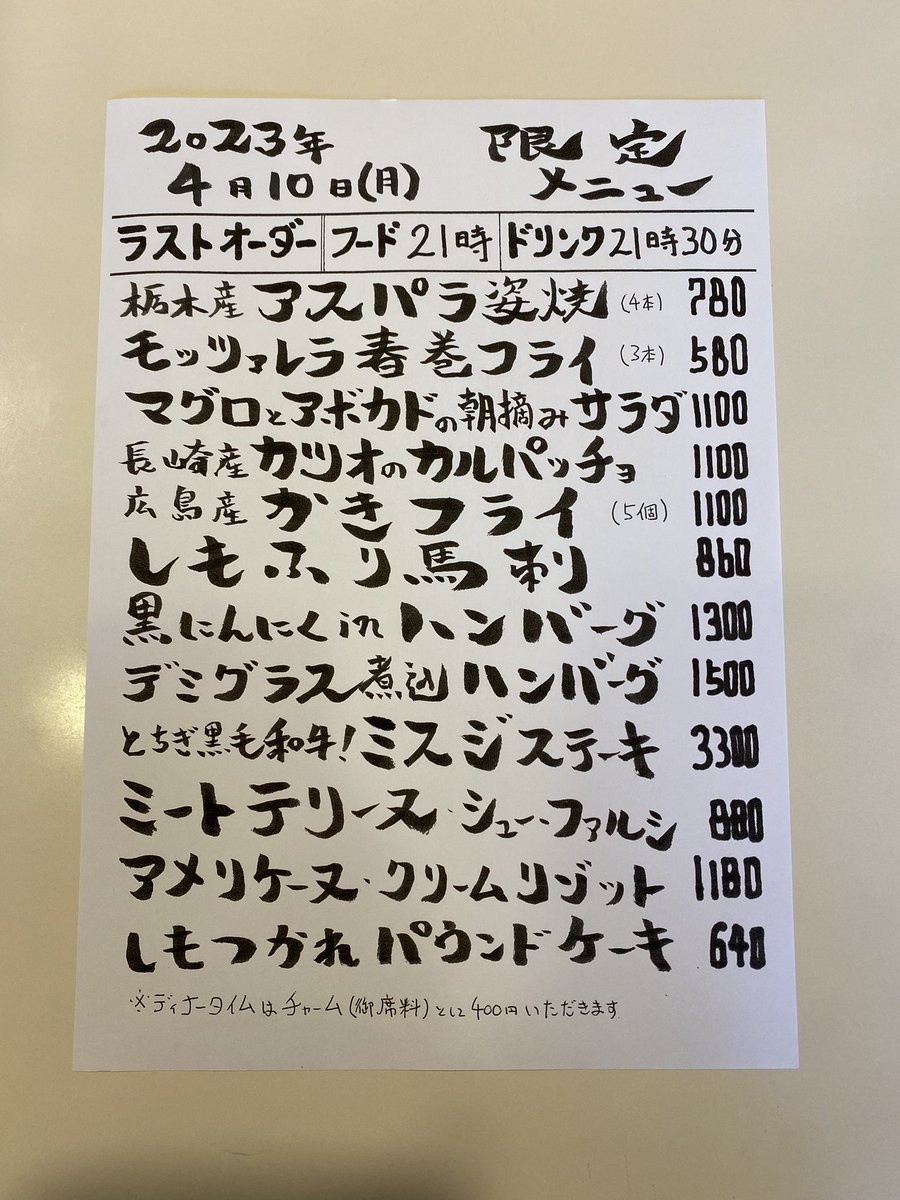 2023年 限定
4月10日(月) メニュー
ラストオーダー フード21時 ドリンク21時30分
栃木産 アスパラ姿焼 (4本) 780
モッツァレラ春巻フライ (3本) 580
マグロとアボカドの朝摘みサラダ 1100
長崎産 カツオのカルパッチョ 1100
広島産 かきフライ (5個) 1100
しもふり馬刺 860
黒にんにくinハンバーグ 1300
デミグラス煮込ハンバーグ 1500
とちぎ黒毛和牛!ミスジステーキ 3300
ミートテリーヌ・シュー・ファルシ 880
アメリケーヌ・クリームリゾット 1180
しもつかれパウンドケーキ 640
※ディナータイムはチャーム(御席料)として400円いただきます